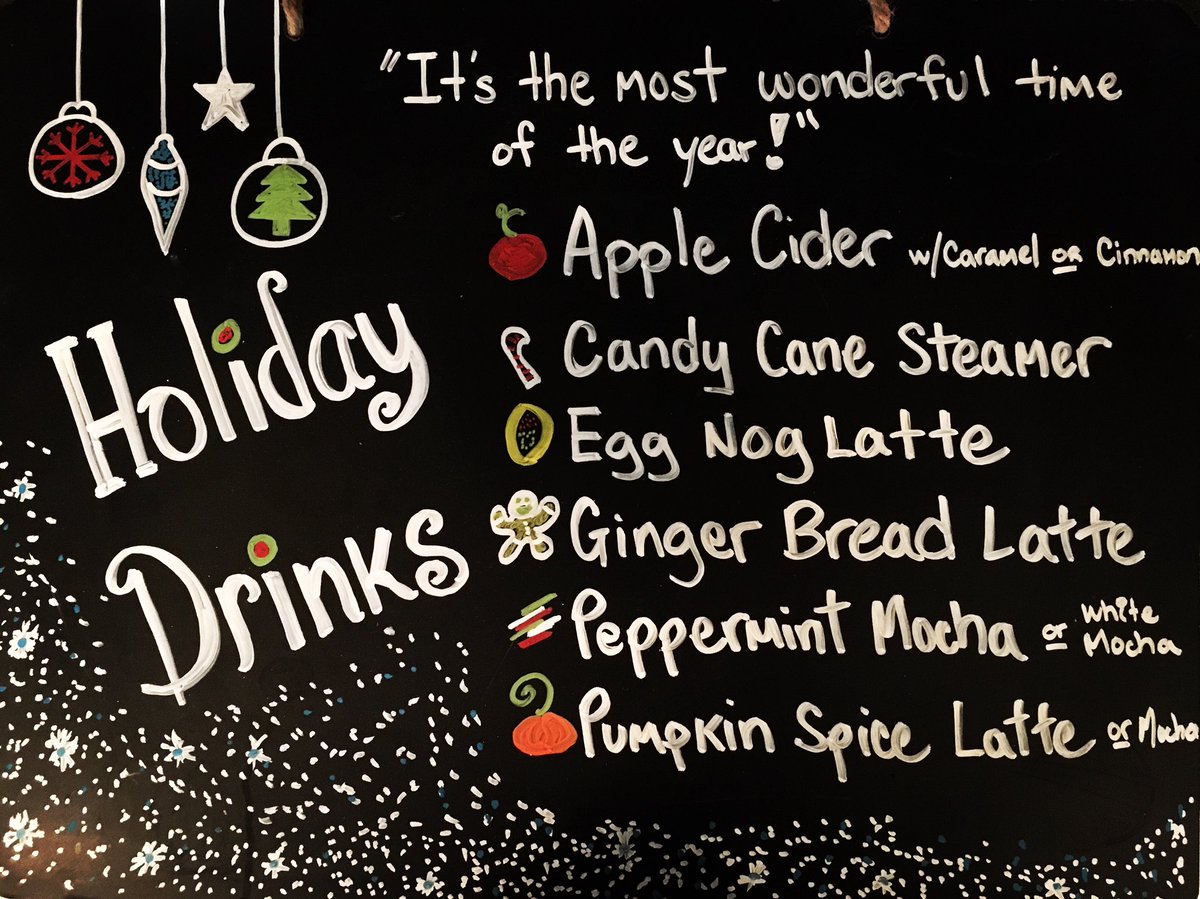 "It's the most wonderful time
of the year!"
Holiday
Drinks
Apple Cider w/Caramel or Cinnamon
Candy Cane Steamer
Egg Nog Latte
Ginger Bread Latte
Peppermint Mocha or White Mocha
Pumpkin Spice Latte or Mocha